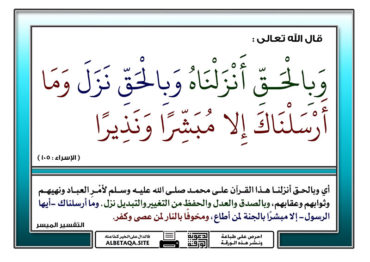 قال الله تعالى :
وَبِالْحَقِّ أَنْزَلْنَاهُ وَبِالْحَقِّ نَزَلَ وَمَا
أَرْسَلْنَاكَ إِلا مُبَشِّرًا وَنَذِيرًا
( الإسراء : ١٠٥ )
أي وبالحق أنزلنا هذا القرآن على محمد صلى الله عليه وسلم لأمر العباد ونهيهم
وثوابهم وعقابهم، وبالصدق والعدل والحفظ من التغيير والتبديل نزل. وما أرسلناك -أيها
الرسول- إلا مبشرًا بالجنة لمن أطاع، ومخوفًا بالنار لمن عصى وكفر.
التفسير الميسر
احرص على طباعة
ونشر هذه الورقة
فالدال على الخير كفاعله
ALBETAQA.SITE